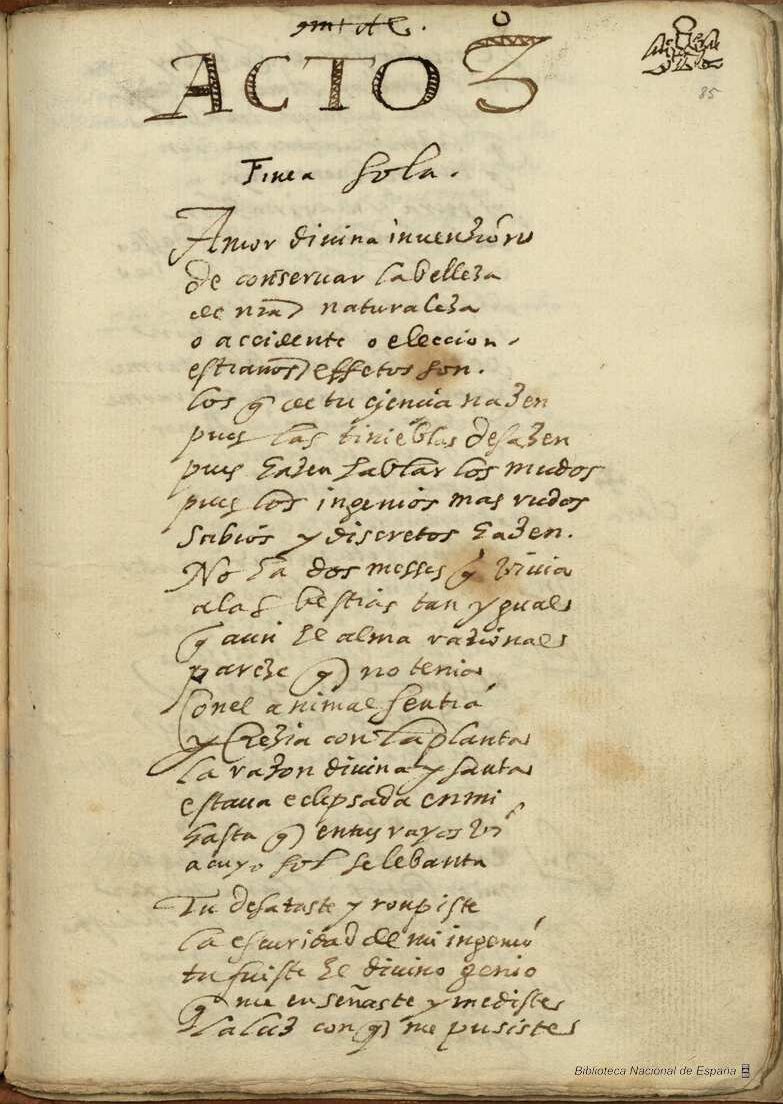 ACTO 3º
85
Finea sola.
Amor divina invenzion
de conservar la belleza
de nra naturaleza
o accidente o eleccion.
estraños effetos son.
los q de tu ciencia nazen
pues las tinieblas desazen
pues hazen hablar los mudos
pues los ingenios mas rudos
sabios y discretos hazen.
No ha dos messes q vivia
a las bestias tan ygual
q aun el alma razional
pareze q no tenia
con el animal sentia
y crezia con la planta
la razon divina y santa
estava eclipsada en mi
hasta q en tus rayos vi
a cuyo sol se lebanta
Tu desataste y rompiste
la escuridad de mi ingenio
tu fuiste el divino genio
q me enseñaste y mediste
la luz con q me pusiste
Biblioteca Nacional de España